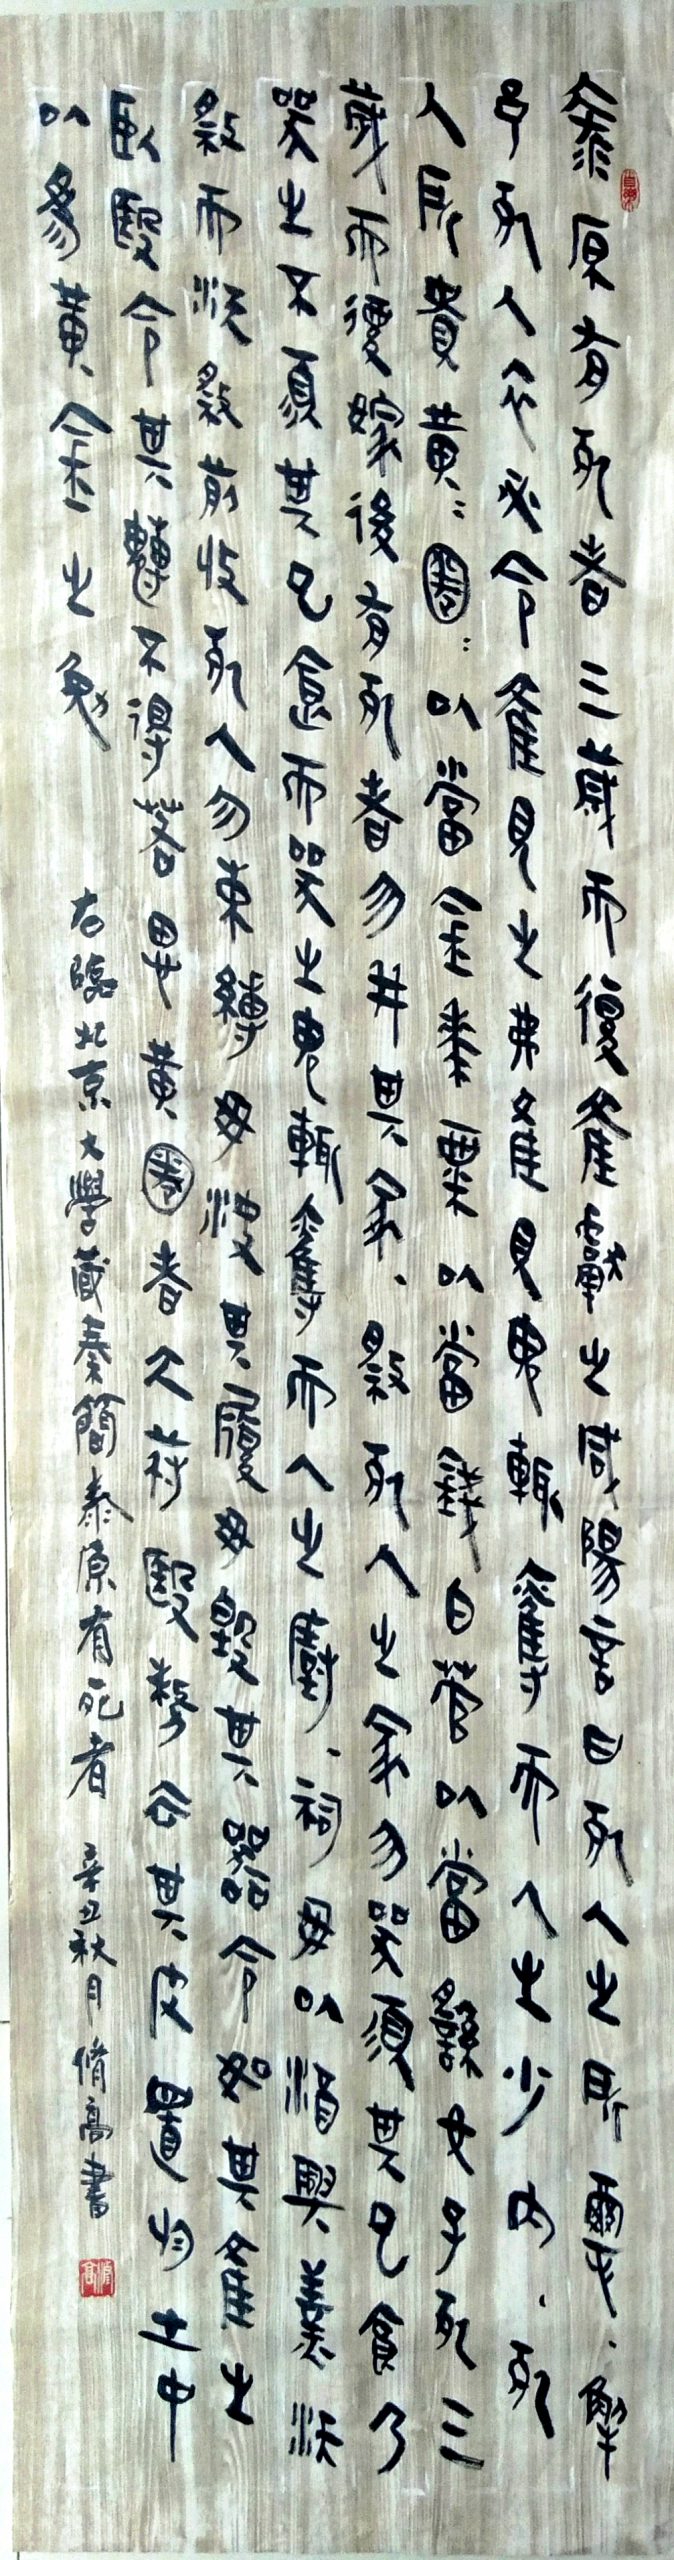 泰原有死者三歲而復產獻之咸陽言曰死人之所惡、解
予死人衣必令產見之弗產見鬼輒奪而入之少內、死
人所貴黃=圈=以當金黍粟以當錢白菅以當繇女子死三
歲而復嫁後有死者勿并其冢、祭死人之冢勿哭須其已食乃
哭之不須其已食而哭之鬼輒奪而入之廚、祠毋以酒與羹沃
祭而沃祭前收死人勿束縛毋決其履毋毀其器令如其產之
臥殹令其不得茖黃圈者殹剺去其皮置於土中
以為黃金之勉
右臨北京大學藏秦簡泰原有死者 辛丑秋月脩高書